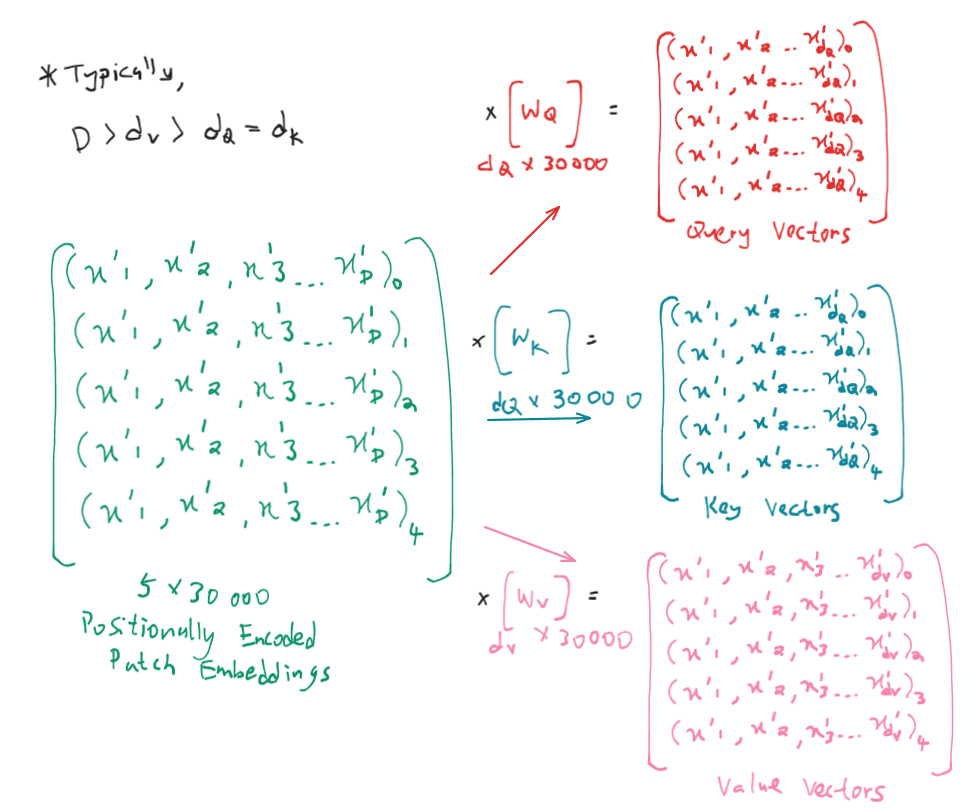 * Typically,
D > dv > dQ = dK
(x'1, x'2, x'3... x'D)0
(x'1, x'2, x'3... x'D)1
(x'1, x'2, x'3... x'D)2
(x'1, x'2, x'3... x'D)3
(x'1, x'2, x'3... x'D)4
5 x 30 000
Positionally Encoded
Patch Embeddings
x [WQ] =
dQ x 30000
(x'1, x'2 .. x'dQ)0
(x'1, x'2... x'dQ)1
(x'1, x'2... x'dQ)2
(x'1, x'2... x'dQ)3
(x'1, x'2... x'dQ)4
Query Vectors
x [WK] =
dQ x 30000
(x'1, x'2 .. x'dQ)0
(x'1, x'2... x'dQ)1
(x'1, x'2... x'dQ)2
(x'1, x'2... x'dQ)3
(x'1, x'2... x'dQ)4
Key Vectors
x [Wv] =
dv x 30000
(x'1, x'2, x'3 .. x'dv)0
(x'1, x'2, x'3... x'dv)1
(x'1, x'2, x'3... x'dv)2
(x'1, x'2, x'3... x'dv)3
(x'1, x'2, x'3... x'dv)4
Value Vectors